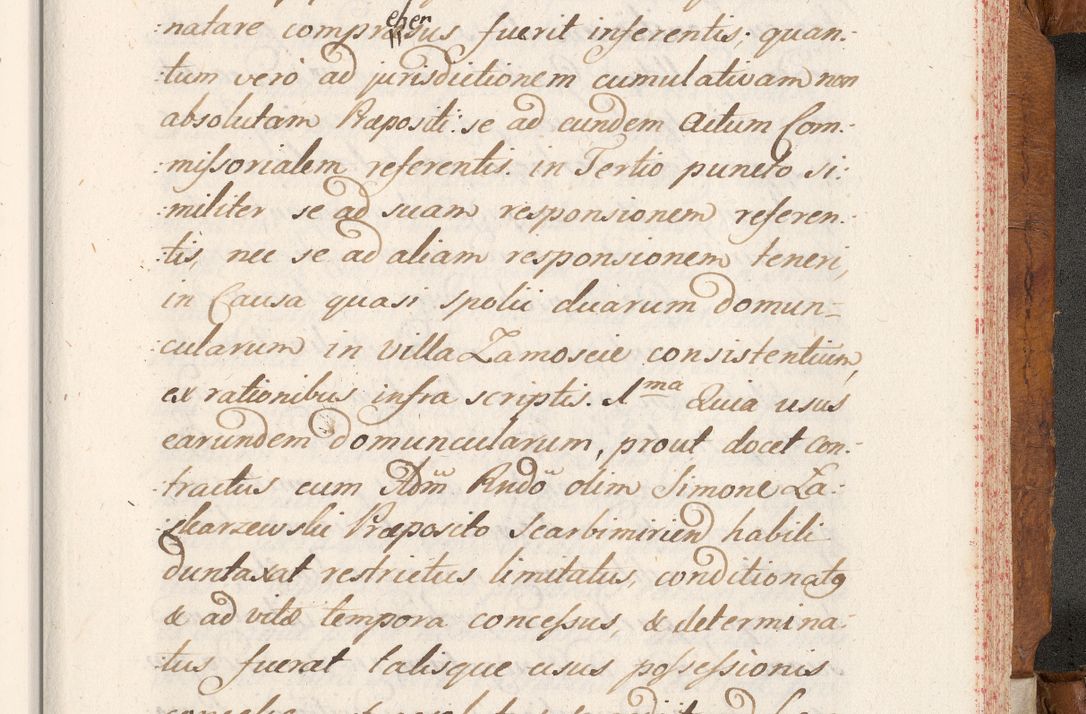 natare comprehensus fuerit inferentis; quan:
tum verò ad jurisdictionem cumulativam non
absolutam Præpositi: se ad eundem Actum Com:
mißorialem referentis. in Tertio puncto si:
:militer se ad suam responsionem referen:
:tis, nec se ad aliam responsionem teneri,
in Causa quasi spolii duarum domun=
cularum in villa Zamoscie consistentium,
ex rationibus infra scriptis. 1ma Quia usus
earundem domuncularum, prout docet con:
:tractus cum Adm Rndo olim Simone Za:
:skarzewski Præposito Scarbimirien habiti
duntaxat restrictus limitatus, conditionatq
& ad vitæ tempora conceßus, & determina:
tus fuerat talisque usus poßeßionis